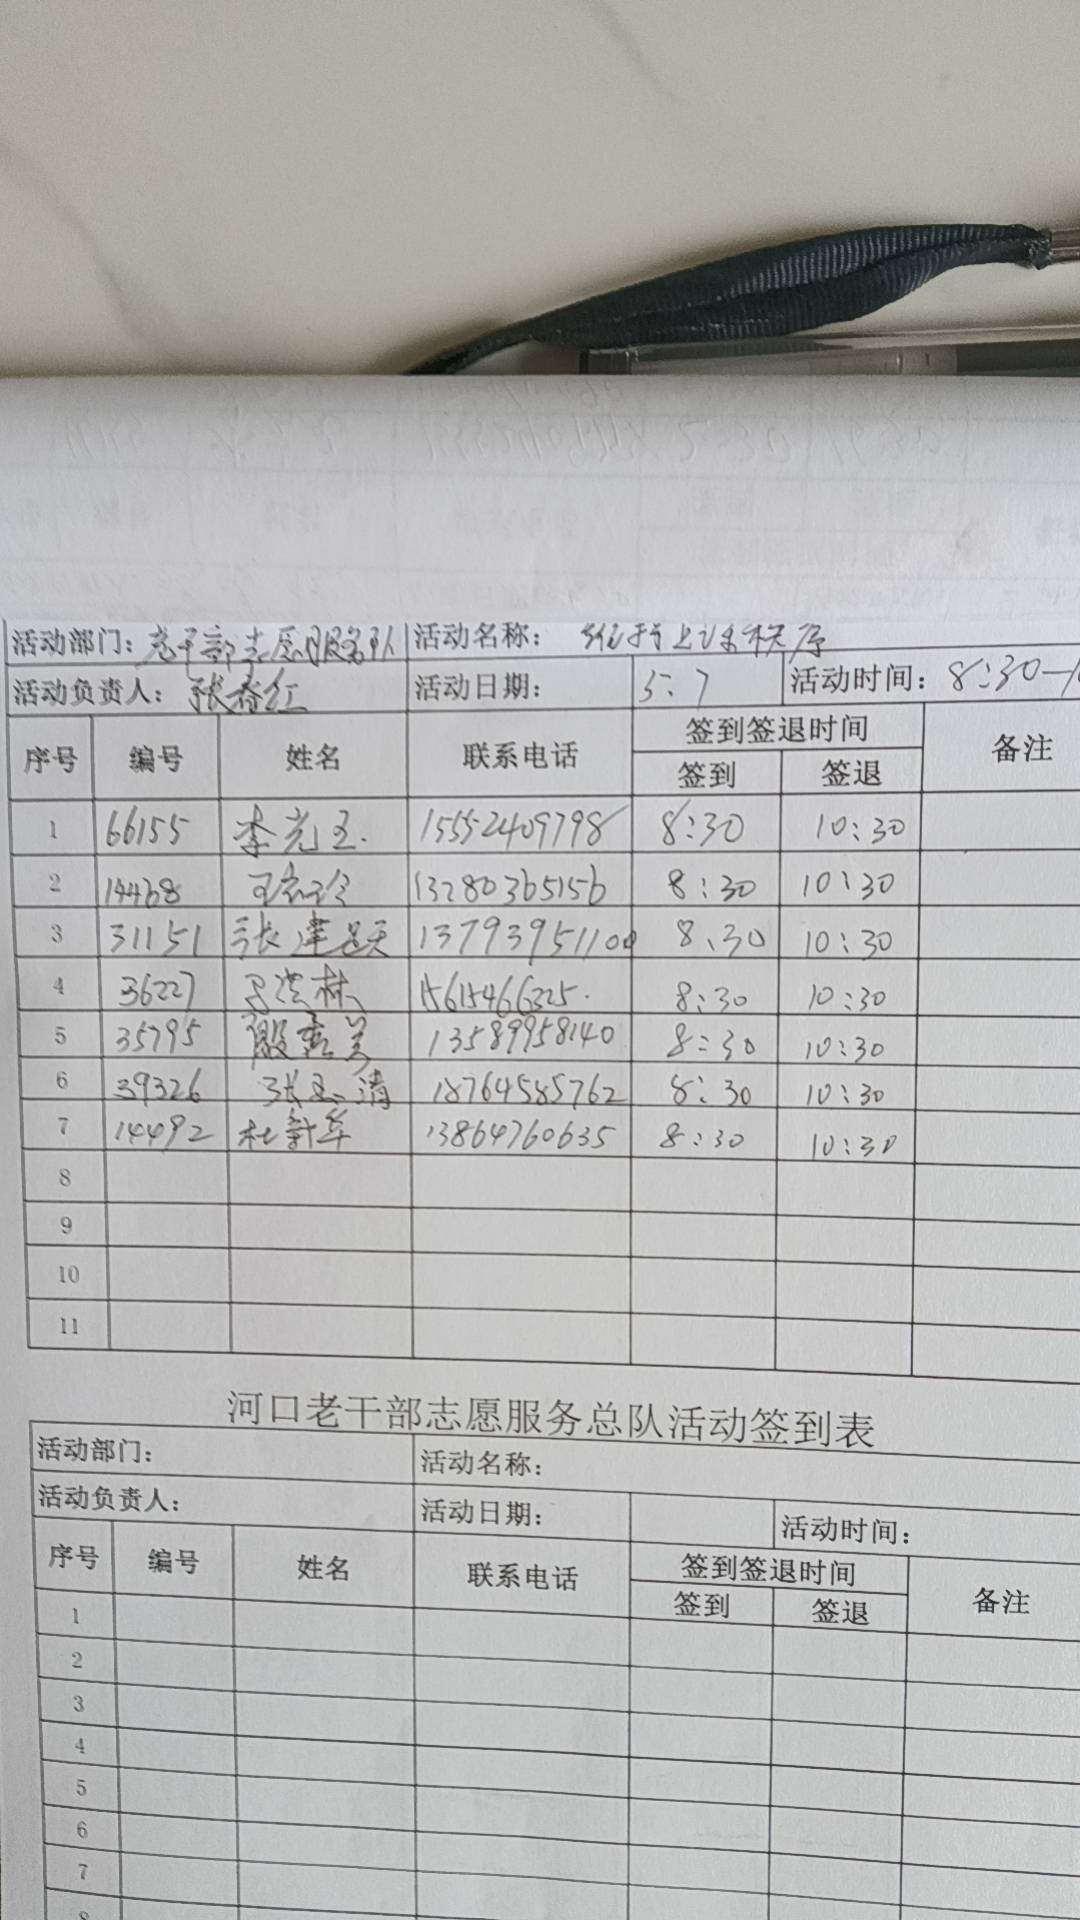 活动部门：老干部志愿服务队 活动名称：维持上课秩序
活动负责人：张春红 活动日期：5.7 活动时间：8:30—1
序号 编号 姓名 联系电话 签到签退时间 备注
签到 签退
1 66155 李光玉 15552409798 8:30 10:30
2 14468 13280365156 8:30 10:30
3 31151 张建昊 13793951100 8:30 10:30
4 36227 马洪林 15615466325 8:30 10:30
5 35795 殷嘉美 13589958140 8:30 10:30
6 39326 张玉清 18764585762 8:30 10:30
7 14492 杜新华 13864760635 8:30 10:30
8
9
10
11
河口老干部志愿服务总队活动签到表
活动部门： 活动名称：
活动负责人： 活动日期： 活动时间：
序号 编号 姓名 联系电话 签到签退时间 备注
签到 签退
1
2
3
4
5
6
7
8